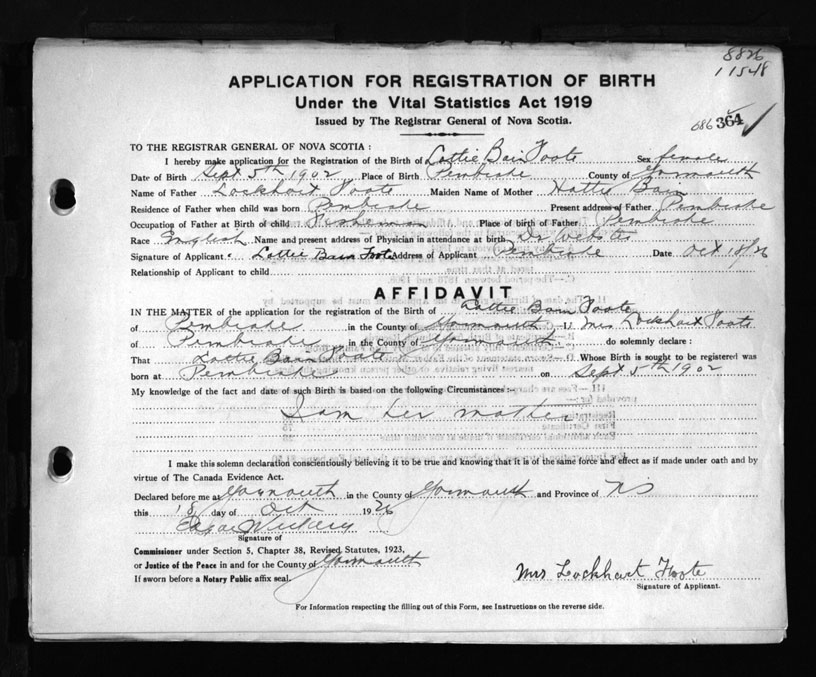 8826
11548
APPLICATION FOR REGISTRATION OF BIRTH
Under the Vital Statistics Act 1919
Issued by The Registrar General of Nova Scotia.
686 364
TO THE REGISTRAR GENERAL OF NOVA SCOTIA :
I hereby make application for the Registration of the Birth of Lottie Bain Foote Sex female
Date of Birth Sept 5th 1902 Place of Birth Pembroke County of Yarmouth
Name of Father Lockhart Foote Maiden Name of Mother Hattie Bain
Residence of Father when child was born Pembroke Present address of Father Pembroke
Occupation of Father at Birth of child Fisherman Place of birth of Father Pembroke
Race English Name and present address of Physician in attendance at birth Dr Webster
Signature of Applicant Lottie Bain Foote Address of Applicant Pembroke Date Oct 18/26
Relationship of Applicant to child
AFFIDAVIT
IN THE MATTER of the application for the registration of the Birth of Lottie Bain Foote
of Pembroke in the County of Yarmouth I, Mrs Lockhart Foote
of Pembroke in the County of Yarmouth do solemnly declare :
That Lottie Bain Foote Whose Birth is sought to be registered was
born at Pembroke on Sept 5th 1902
My knowledge of the fact and date of such Birth is based on the following Circumstances :-
I am her mother
I make this solemn declaration conscientiously believing it to be true and knowing that it is of the same force and effect as if made under oath and by
virtue of The Canada Evidence Act.
Declared before me at Yarmouth in the County of Yarmouth and Province of NS
this 18 day of Oct 1926
Signature of
Commissioner under Section 5, Chapter 38, Revised Statutes, 1923,
or Justice of the Peace in and for the County of Yarmouth
If sworn before a Notary Public affix seal.
Mrs Lockhart Foote
Signature of Applicant.
For Information respecting the filling out of this Form, see Instructions on the reverse side.